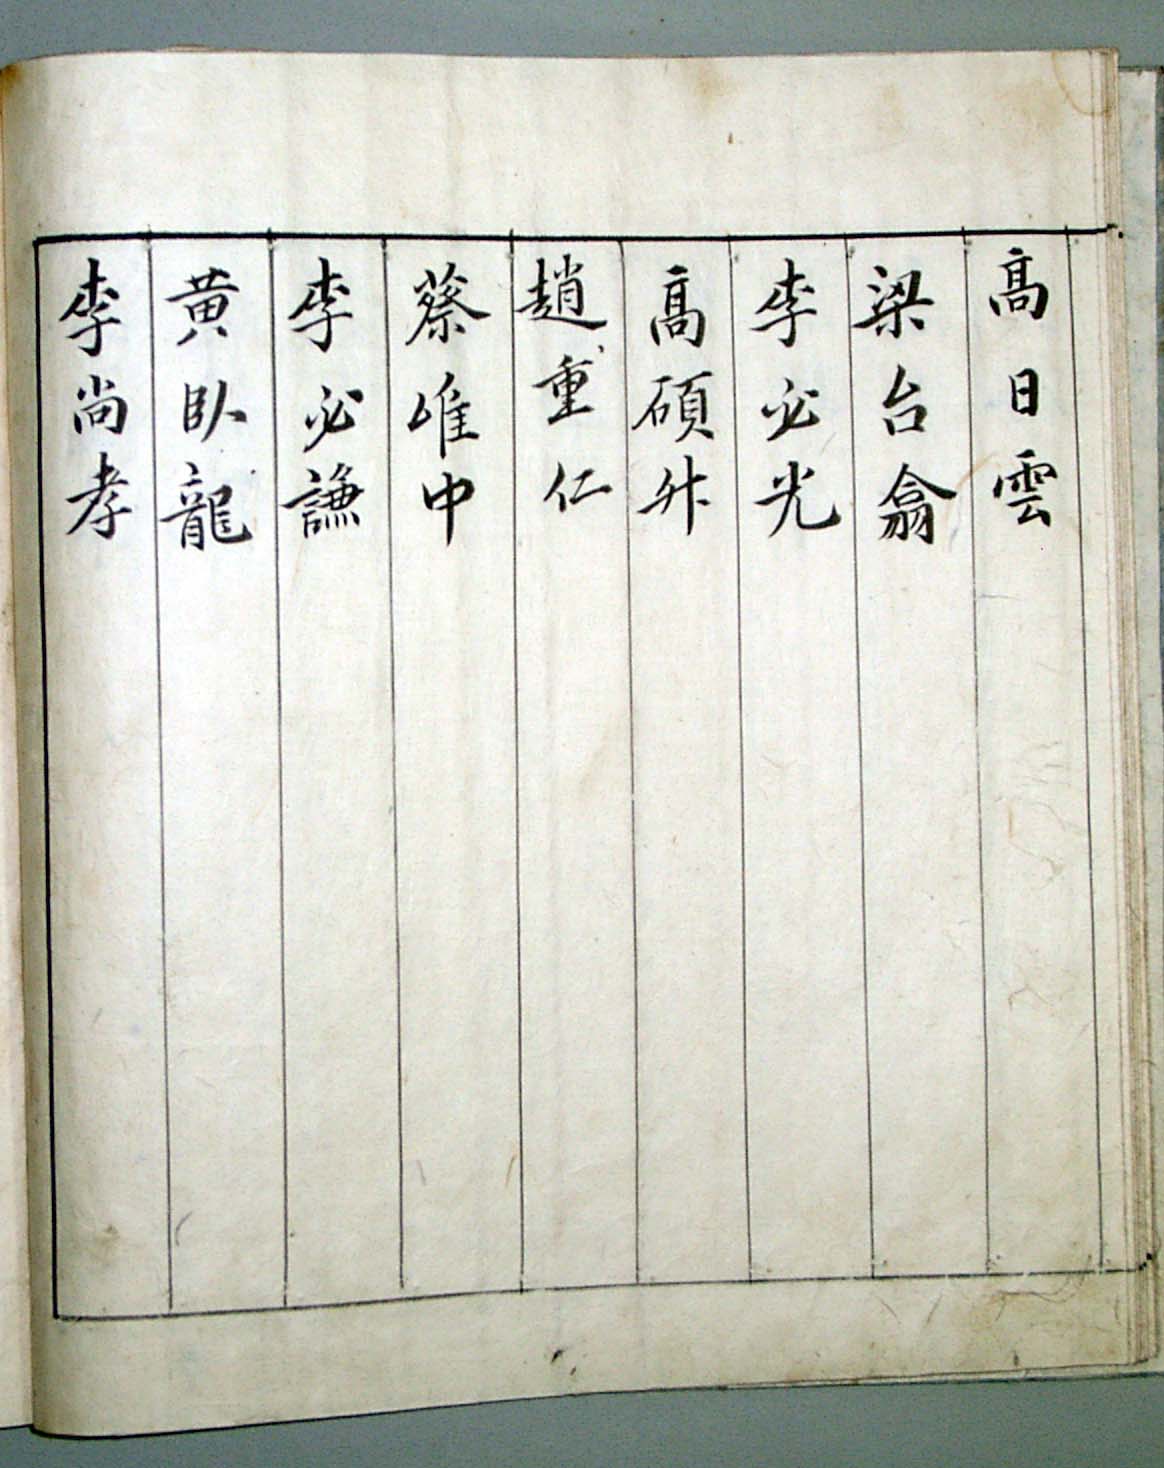 高日雲
梁台翕
李必光
高碩升
趙重仁
蔡唯中
李必謙
黄臥龍
李尚孝